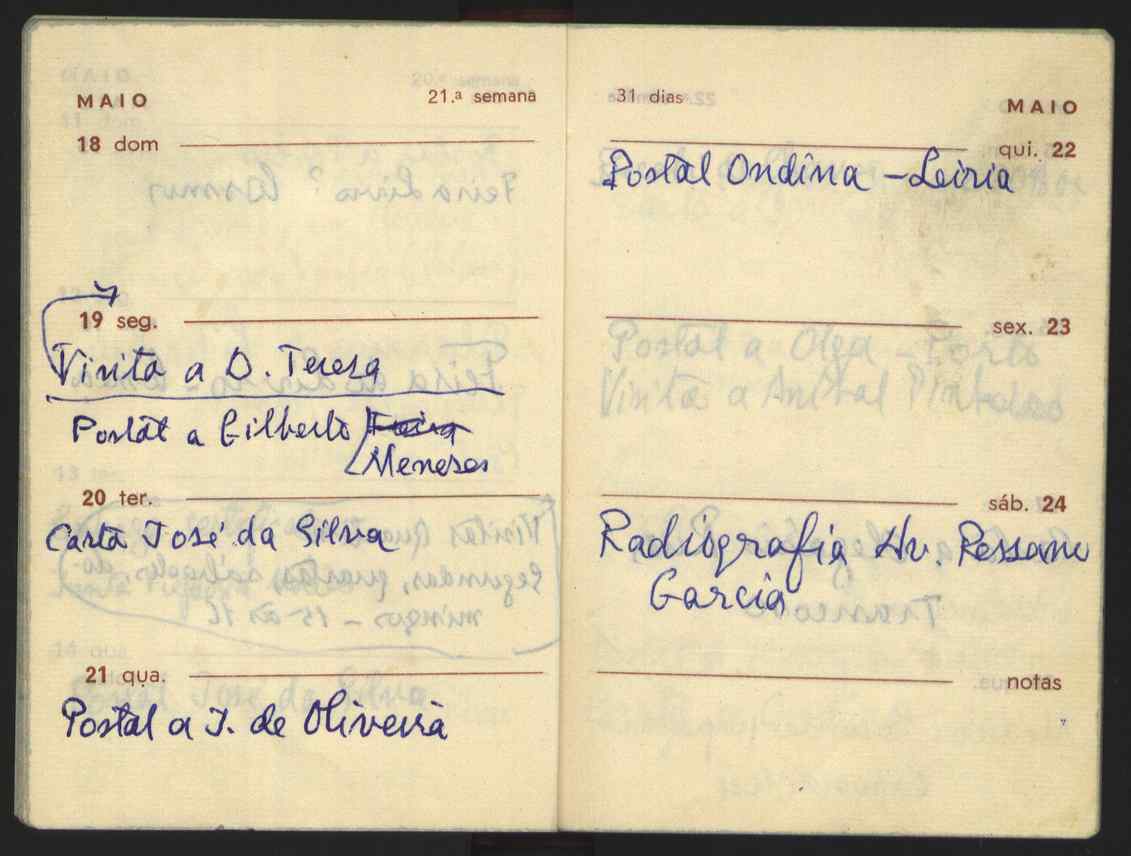 MAIO
21.ª semana
18 dom
19 seg.
Visita a D. Teresa
Postal a Gilberto Feira
Meneses
20 ter.
Carta José da Silva
21 qua.
Postal a J. de Oliveira
31 dias
MAIO
qui. 22
Postal Ondina - Leiria
sex. 23
Postal a Olga - Porto
Visita a Aníbal
sáb. 24
Radiografia Av.
Garcia
notas